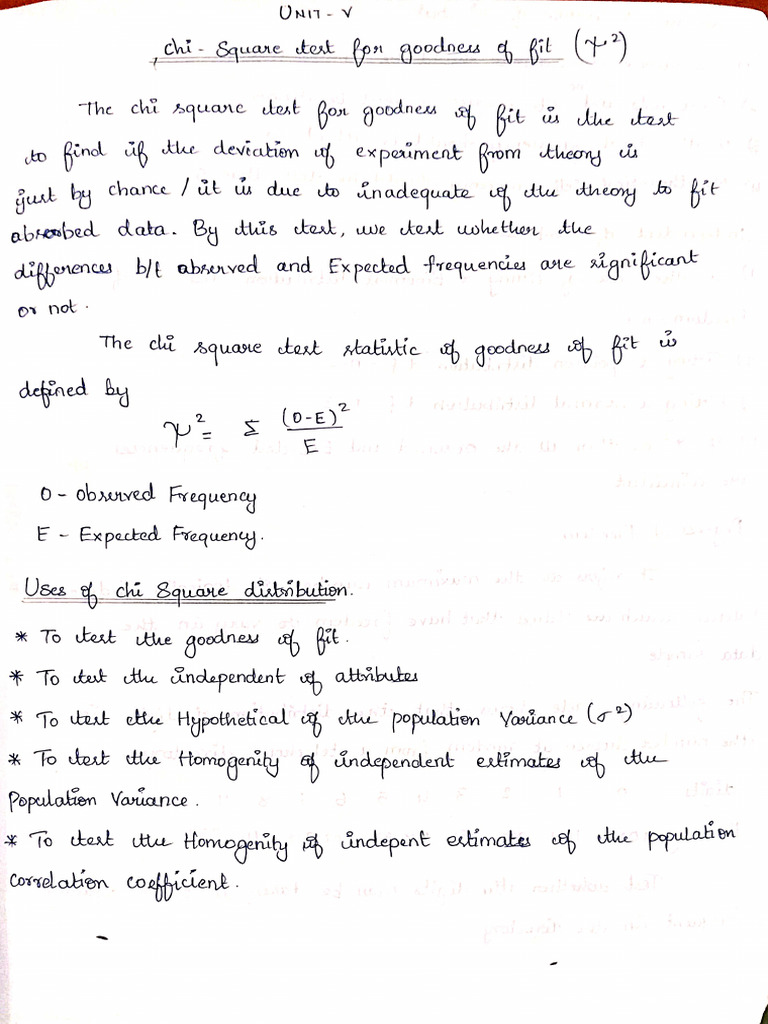 UNIT - V
Chi - Square test for goodness of fit (χ²)
The chi square test for goodness of fit is the test
to find if the deviation of experiment from theory is
just by chance / it is due to inadequate of the theory to fit
absrobed data. By this test, we test whether the
differences b/t observed and Expected frequencies are significant
or not.
The chi square test statistic of goodness of fit is
defined by
χ² = Σ (O-E)² / E
O - Observed Frequency
E - Expected Frequency.
Uses of chi Square distribution.
* To test the goodness of fit.
* To test the independent of attributes
* To test the Hypothetical of the population Variance (σ²)
* To test the Homogenity of independent estimates of the
Population Variance.
* To test the Homogenity of indepent estimates of the population
Correlation coefficient.